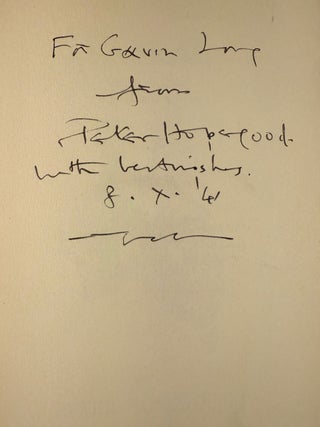 For Gavin Long
from
Peter Hopegood.
with best wishes.
8 . X . '41